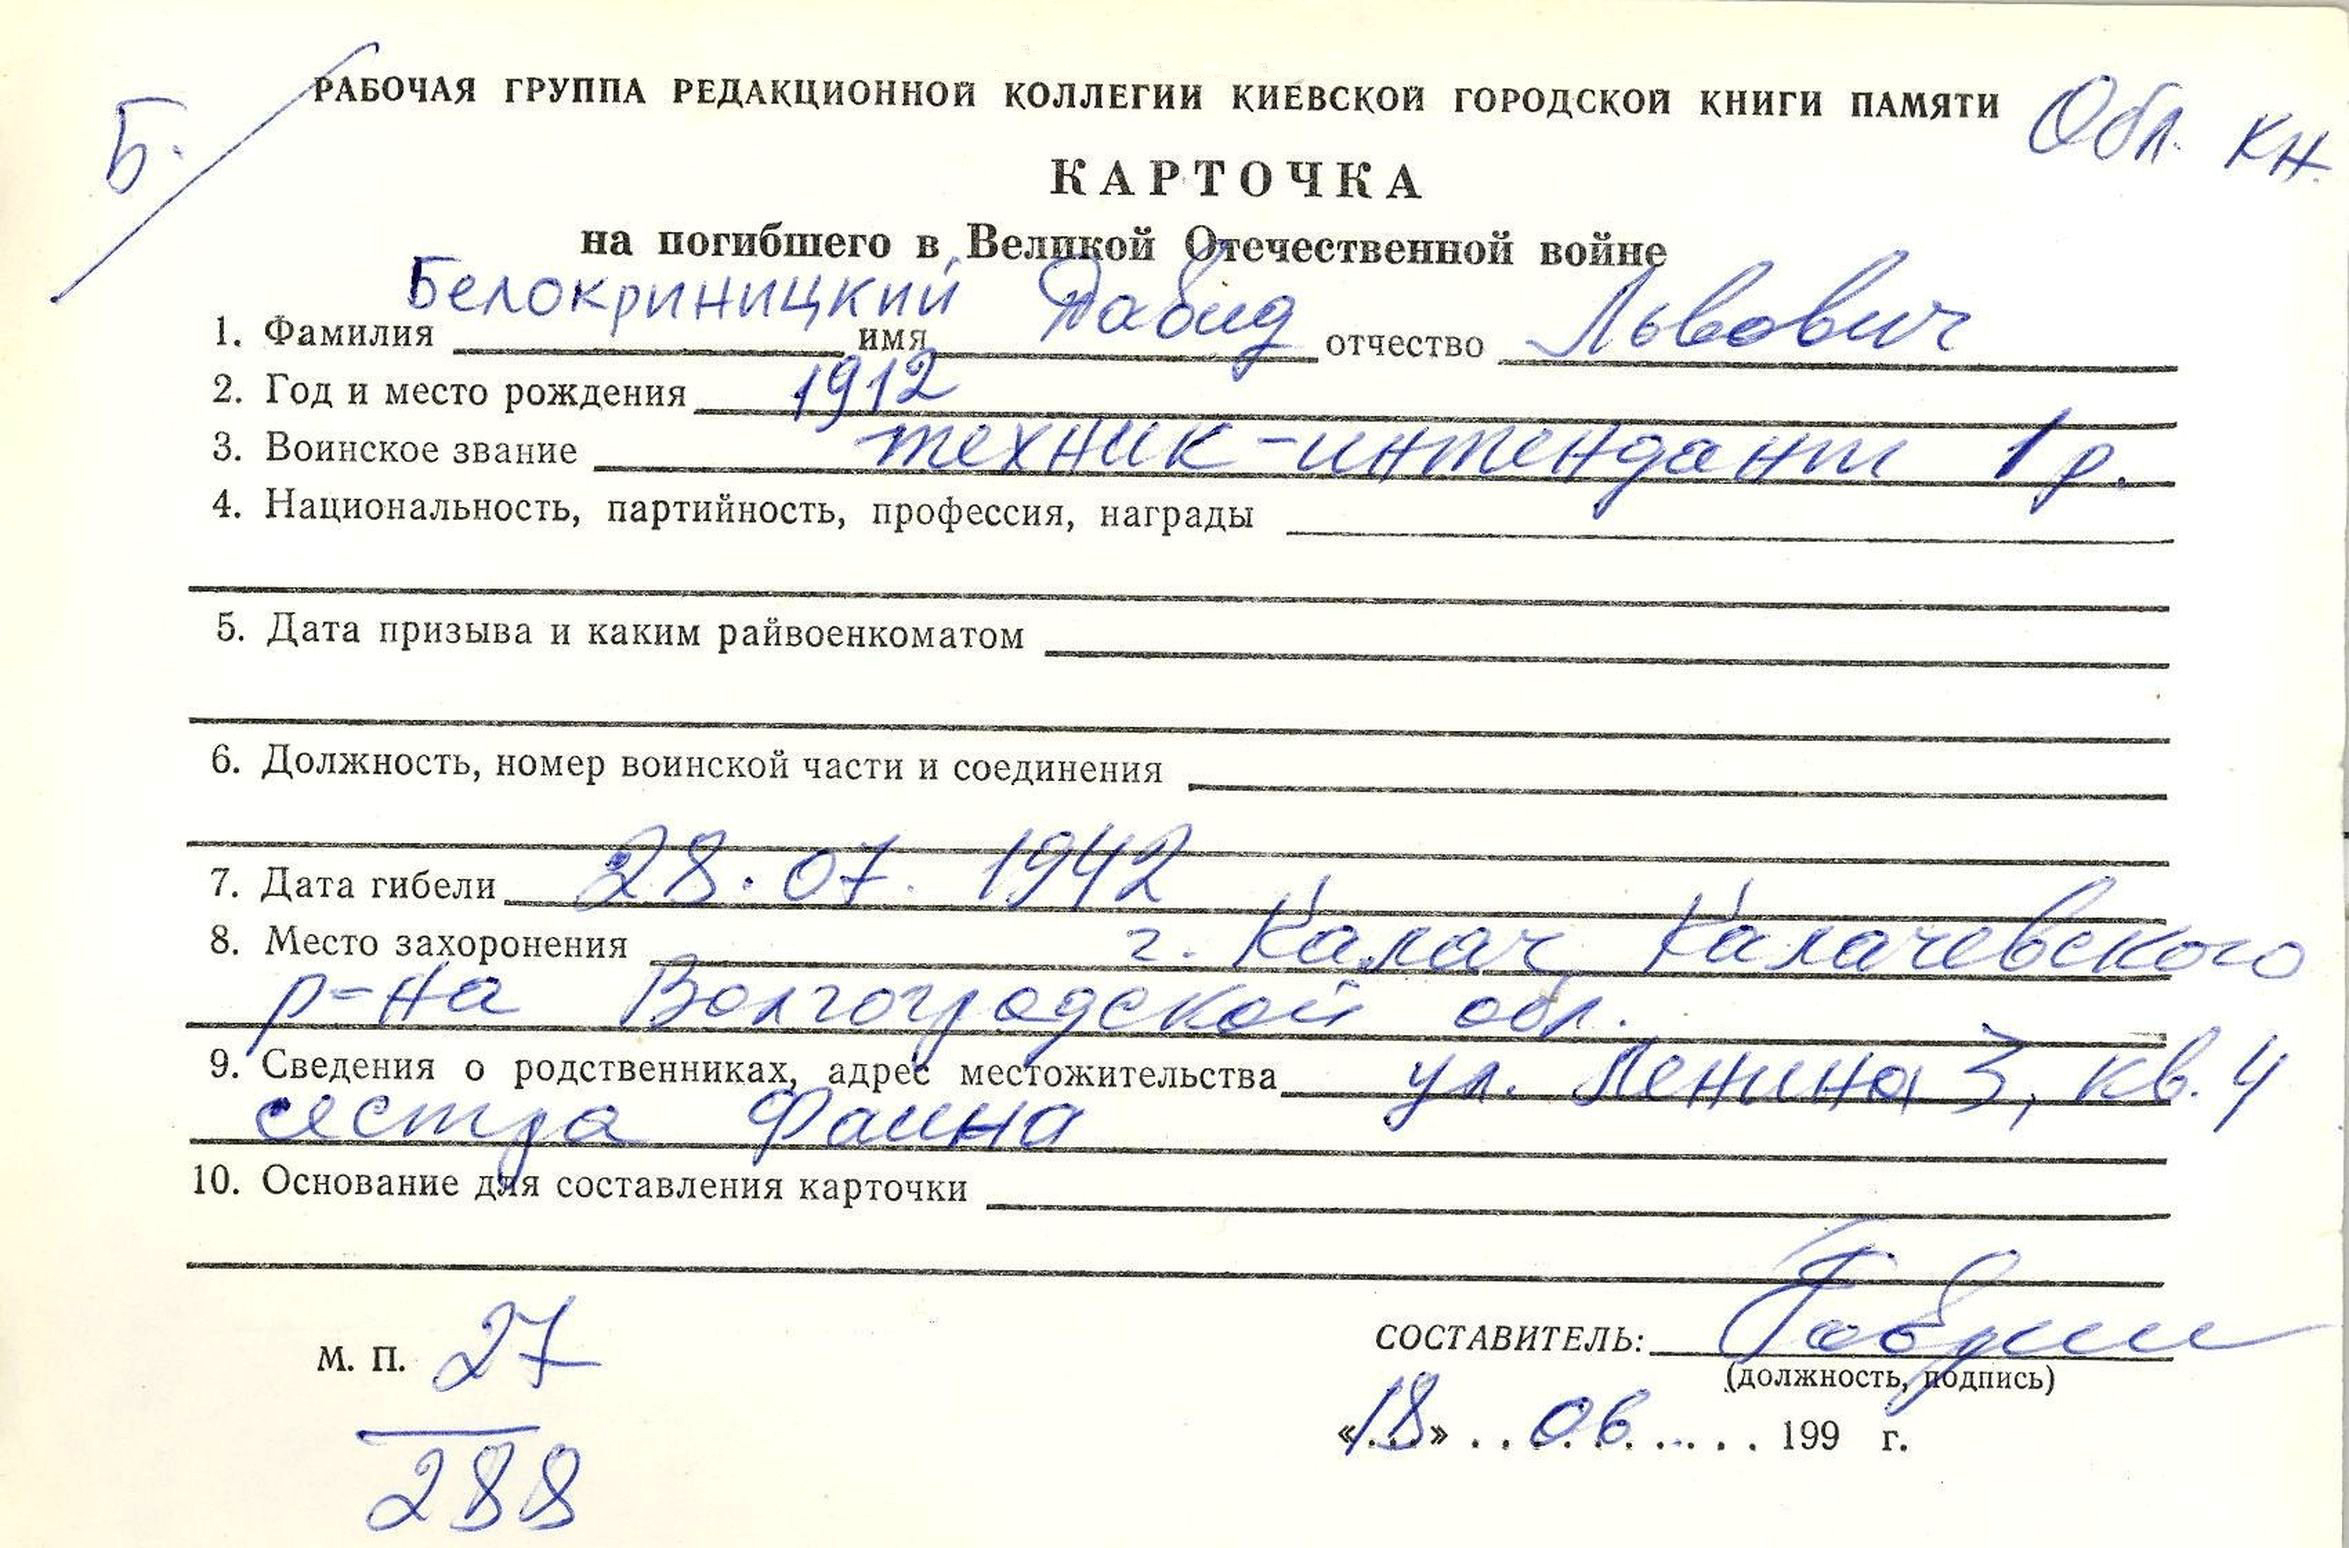 Б.
РАБОЧАЯ ГРУППА РЕДАКЦИОННОЙ КОЛЛЕГИИ КИЕВСКОЙ ГОРОДСКОЙ КНИГИ ПАМЯТИ Обл. кн.
КАРТОЧКА
на погибшего в Великой Отечественной войне
1. Фамилия Белокриницкий имя Давид отчество Львович
2. Год и место рождения 1912
3. Воинское звание техник-интендант 1 р.
4. Национальность, партийность, профессия, награды
5. Дата призыва и каким райвоенкоматом
6. Должность, номер воинской части и соединения
7. Дата гибели 28.07.1942
8. Место захоронения г. Калач, Калачевского
р-на Волгоградской обл.
9. Сведения о родственниках, адрес местожительства ул. Ленина 3, кв. 4
сестра Фаина
10. Основание для составления карточки
М. П. 27
288
СОСТАВИТЕЛЬ:
(должность, подпись)
«18» . . 06 . . . . . 199 г.